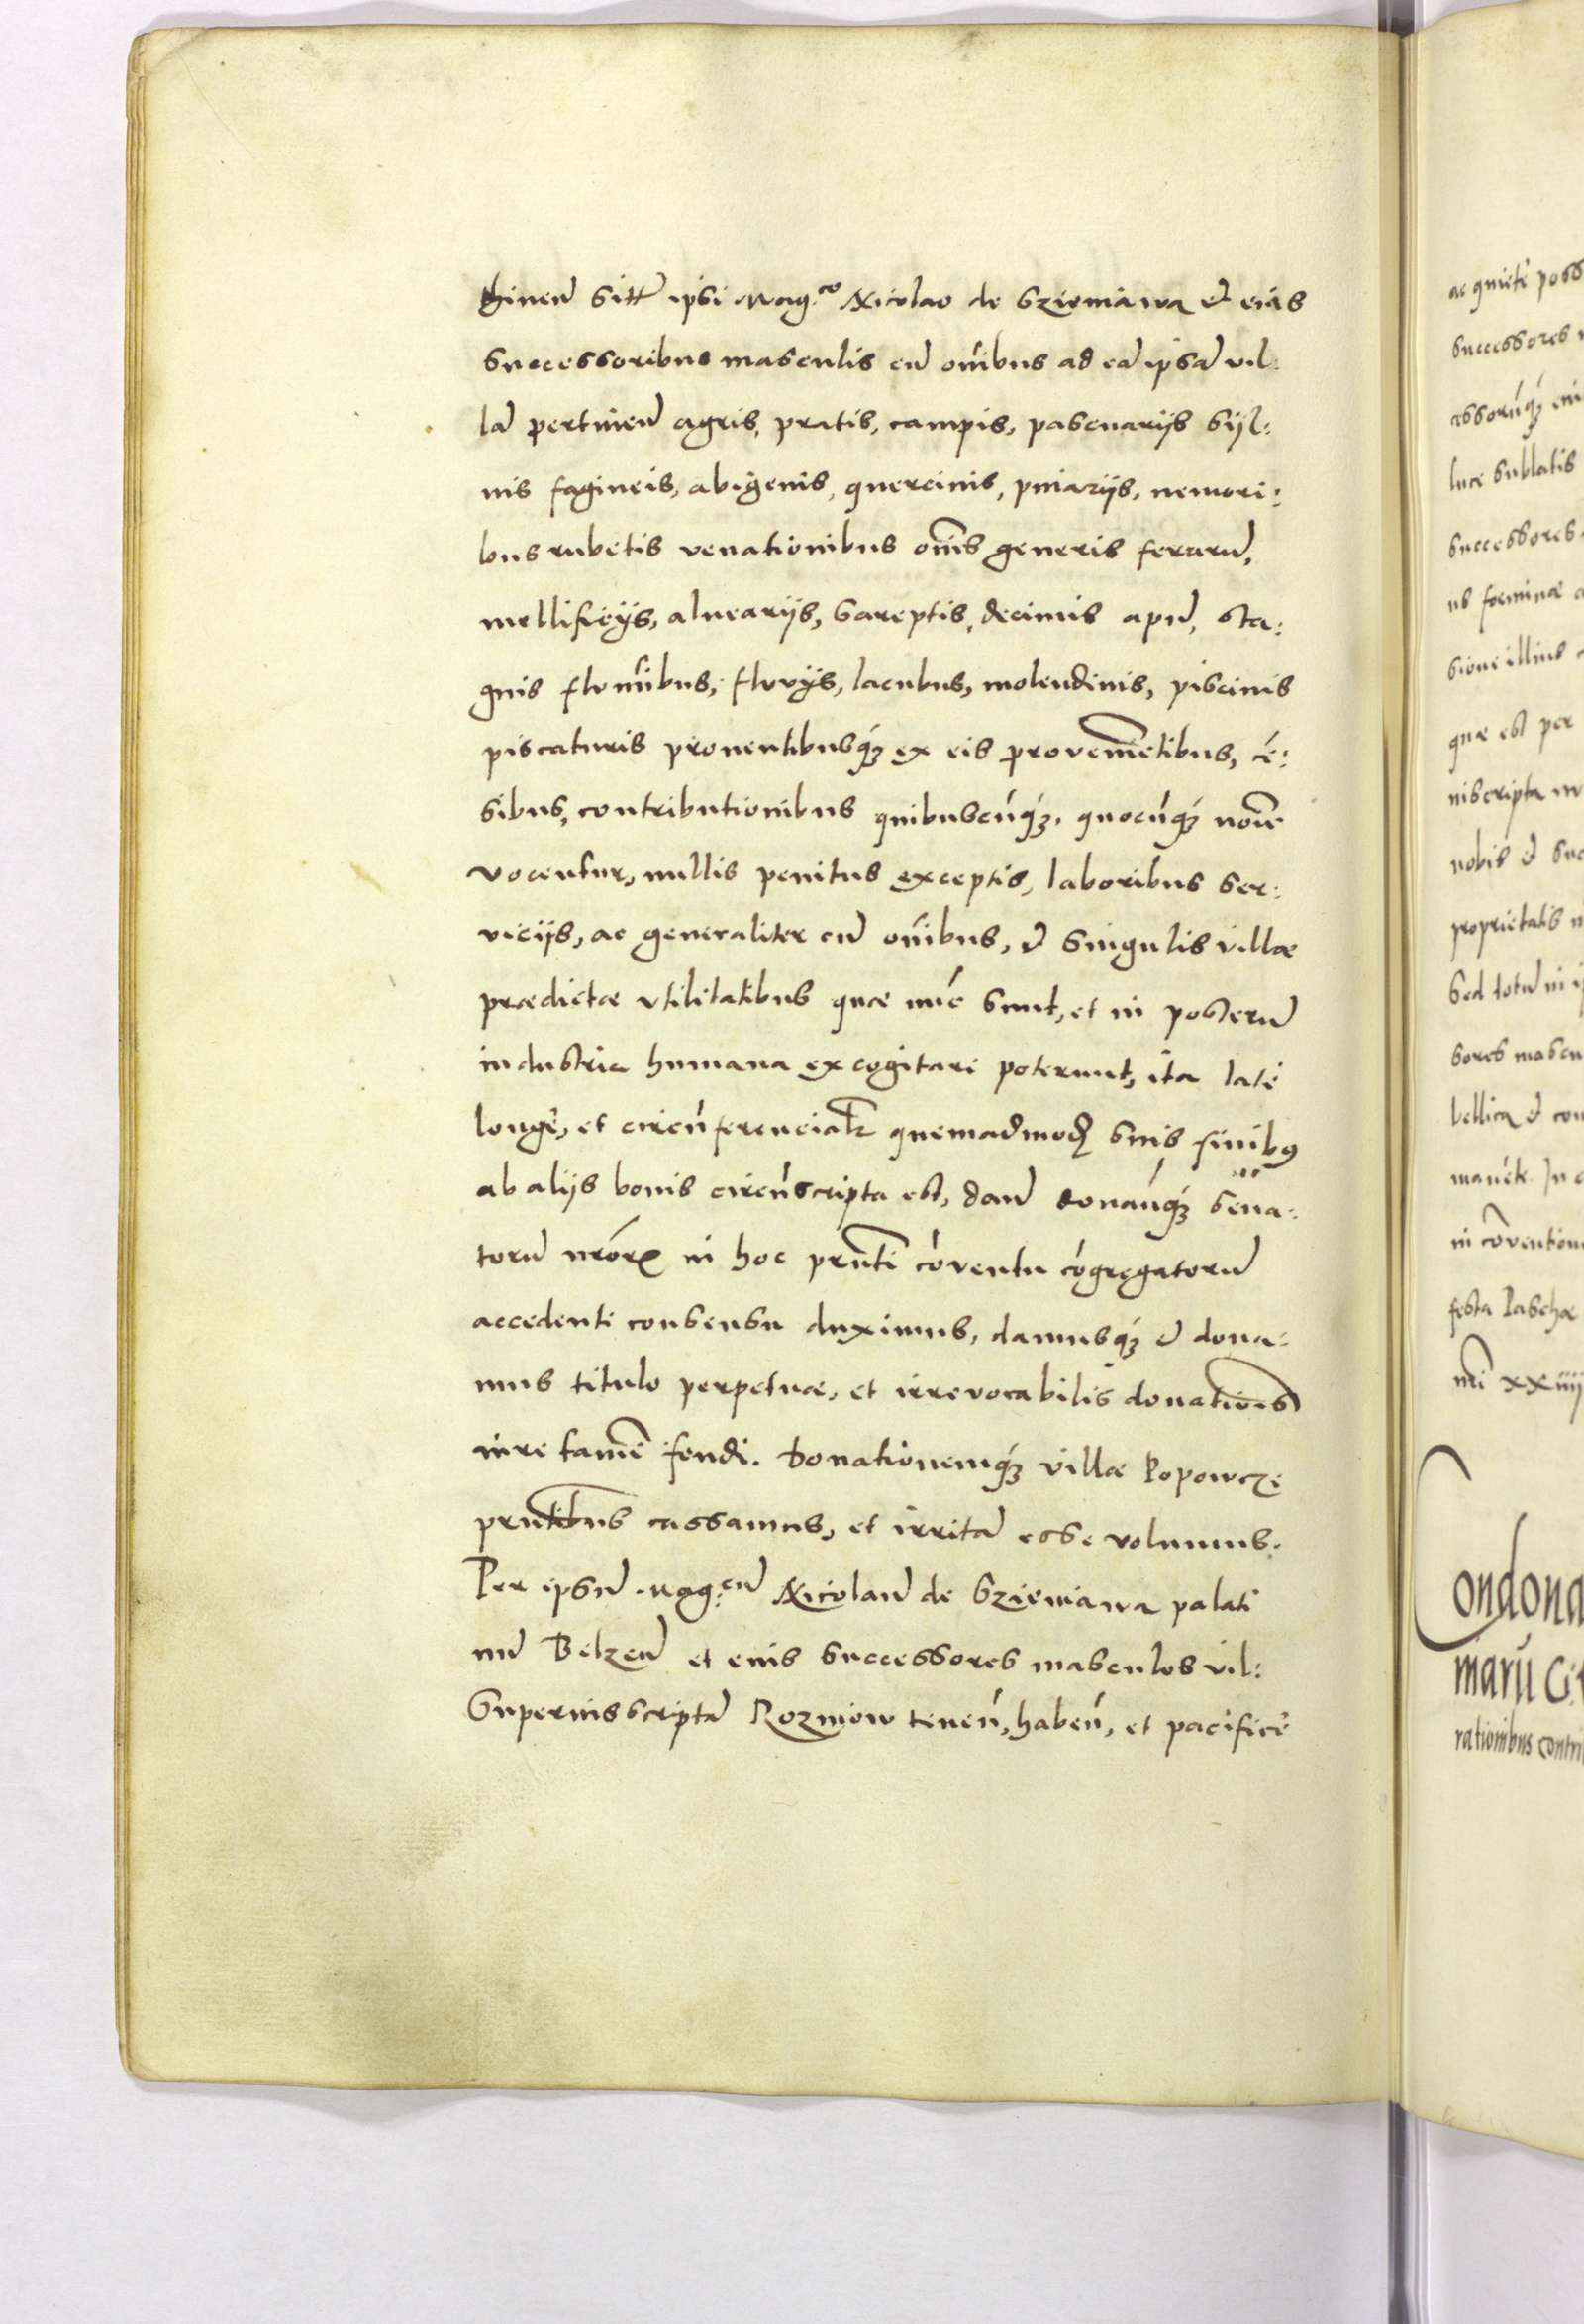 thinen̄ sitā ipsi Mag.co Nicolao de Szieniawa et eius
successoribus masculis cū oῑbus ad eā ipsā vil:
lā pertinen̄ agris, pratis, campis, pascuarijs syl:
uis fagineis, abigenis, quercinis, piniarijs, nemori:
bus rubetis venationibus oīnis generis ferarū,
mellificijs, aluearijs, sareptis, decimis apū, sta:
gnis flumībus, fluvijs, lacubus, molendinis, piscinis
piscaturis prouentibusq́ꝫ ex eis provenīetibus, cē:
sibus, contributionibus quibuscūq́ꝫ, quocūq́ꝫ noīe
vocentur, nullis penitus exceptis, laboribus ser:
vicijs, ac generaliter cū oībus, et singulis villae
praedictae vtilitatibus quae nūc sunt, et in posterū
industria humana excogitari poterunt, ita latè
longè, et circūferencialr̄ quemadmodꝫ suis finibꝯ
ab alijs bonis circūscripta est, dan̄ donan̄q́ꝫ sena:
torū nrōrꝫ in hoc prn̄ti cōventu cōgregatorū
accedenti consensu duximus, damusq́ꝫ et dona:
mus titulo perpetuae, et irrevocabilis donationis
iure tamē feudi. Donationemq́ꝫ villae Popowcze
prn̄tibus cassamus, et irritā esse volumus.
Per ipsū Mag:cū Nicolaū de Szieniawa palati
nū Belzen̄ et eius successores masculos vil:
Superiusscriptā Rozniow tenen̄, haben̄, et pacificè
ac quietè poss
successores
essorūq́ꝫ
luce sublatis
successores
us foeminae
sione illius
quae est per
niscripta
nobis et suc
proprietatis
Sed totū in
sores mascu
bellica et con
In
in cōventione
festa Paschae
xxiiij
ondona
marū
rationibus contri